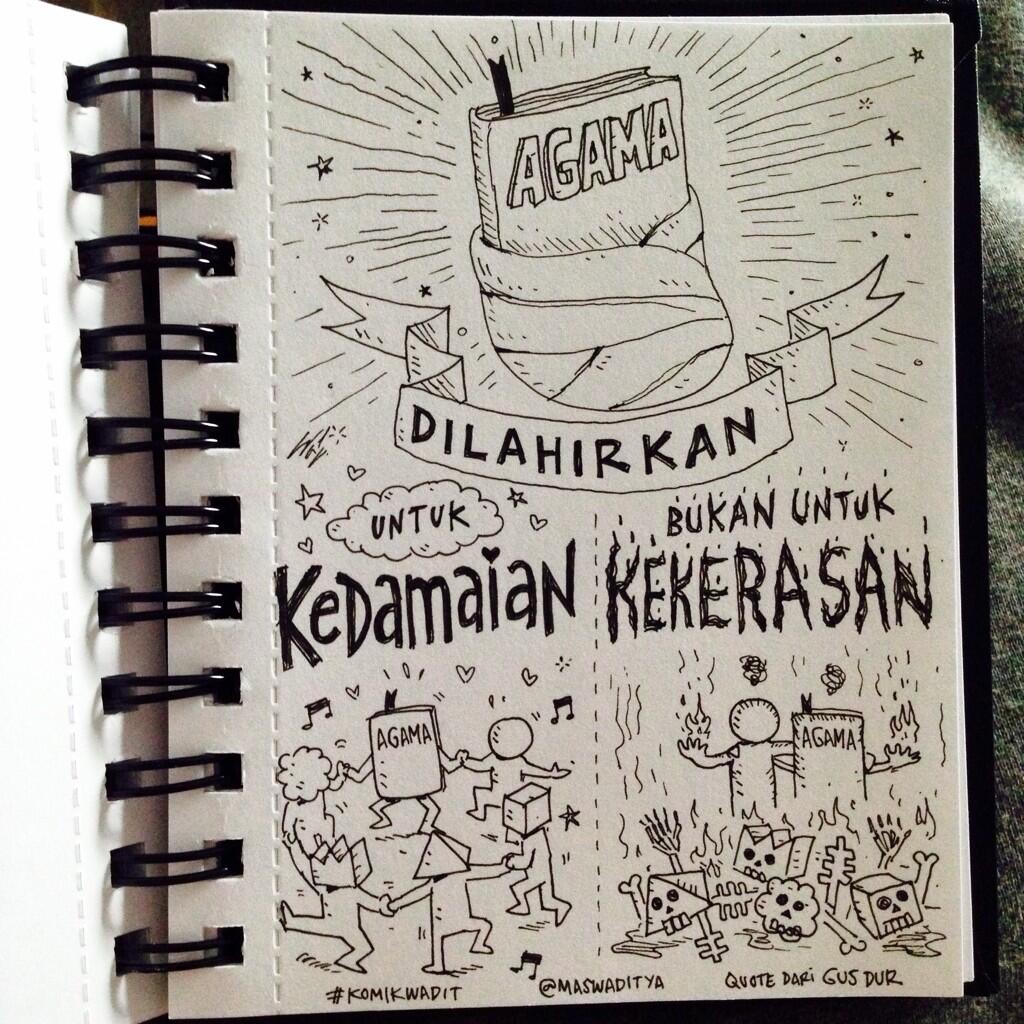 AGAMA
DILAHIRKAN
UNTUK
KeDamaiaN
BUKAN UNTUK
KEKERASAN
AGAMA
AGAMA
#KOMIKWADIT
@MASWADITYA
QUOTE DARI GUS DUR